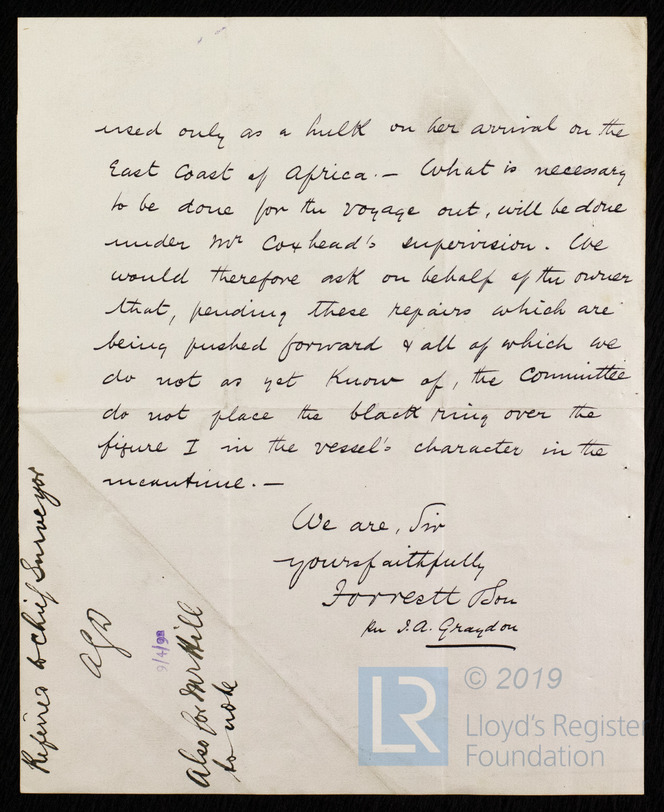 used only as a hulk on her arrival on the
East Coast of Africa. - What is necessary
to be done for the voyage out, will be done
under Mr Coxhead's supervision. We
would therefore ask on behalf of the owner
that, pending these repairs which are
being pushed forward & all of which we
do not as yet know of, the Committee
do not place the black ring over the
figure I in the vessel's character in the
meantime. -
We are, Sir
yours faithfully
Forrestt & Son
per J.A. Graydon
Referred to Chief Surveyor
9/4/98
Also for Mr Hill
to note
LR
© 2019
Lloyd's Register
Foundation